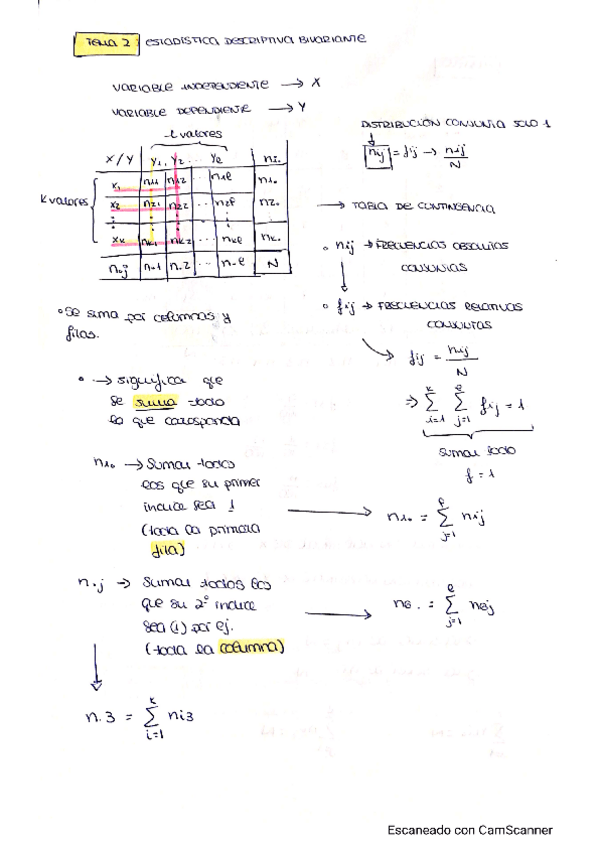 TEMA 2: ESTADÍSTICA DESCRIPTIVA BIVARIANTE
VARIABLE INDEPENDIENTE → X
VARIABLE DEPENDIENTE → Y
l valores
X/Y y1. y2 ... yl ni.
K valores
x1 n11 n12 n1l n1.
x2 n21 n22 ... n2l n2.
xk nk1 nk2 ... nkl nk.
n.j n.1 n.2 ... n.l N
DISTRIBUCIÓN CONJUNTA SOLO 1
nij = fij → nij/N
→ TABLA DE CONTINGENCIA
• nij → FRECUENCIAS ABSOLUTAS
CONJUNTAS
• fij → FRECUENCIAS RELATIVAS
CONJUNTAS
fij = nij/N
⇒ k Σ i=1 l Σ j=1 fij = 1
sumar todo
f = 1
• Se suma por columnas y
filas.
• → significa que
se suma todo
lo que corresponda
n1. → Sumar todos
los que su primer
indice sea 1
(toda la primera
fila)
→ n1. = l Σ j=1 n1j
n.j → Sumar todos los
que su 2º indice
sea (1) por ej.
(toda la columna)
→ n8. = l Σ j=1 n8j
n.3 = k Σ i=1 ni3
Escaneado con CamScanner